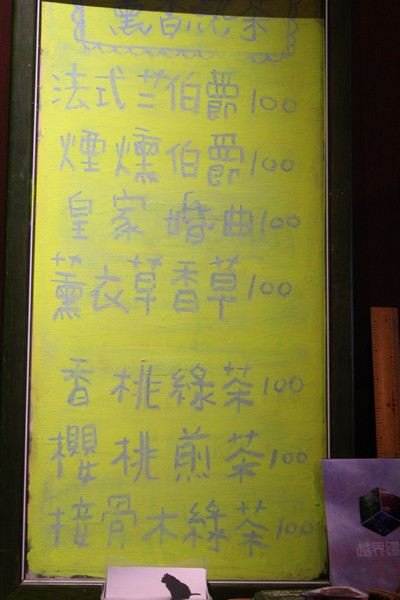 法式兰伯爵100
煙燻伯爵100
皇家婚曲100
薰衣草香草100
香桃綠茶100
櫻桃煎茶100
接骨木綠茶100
越界